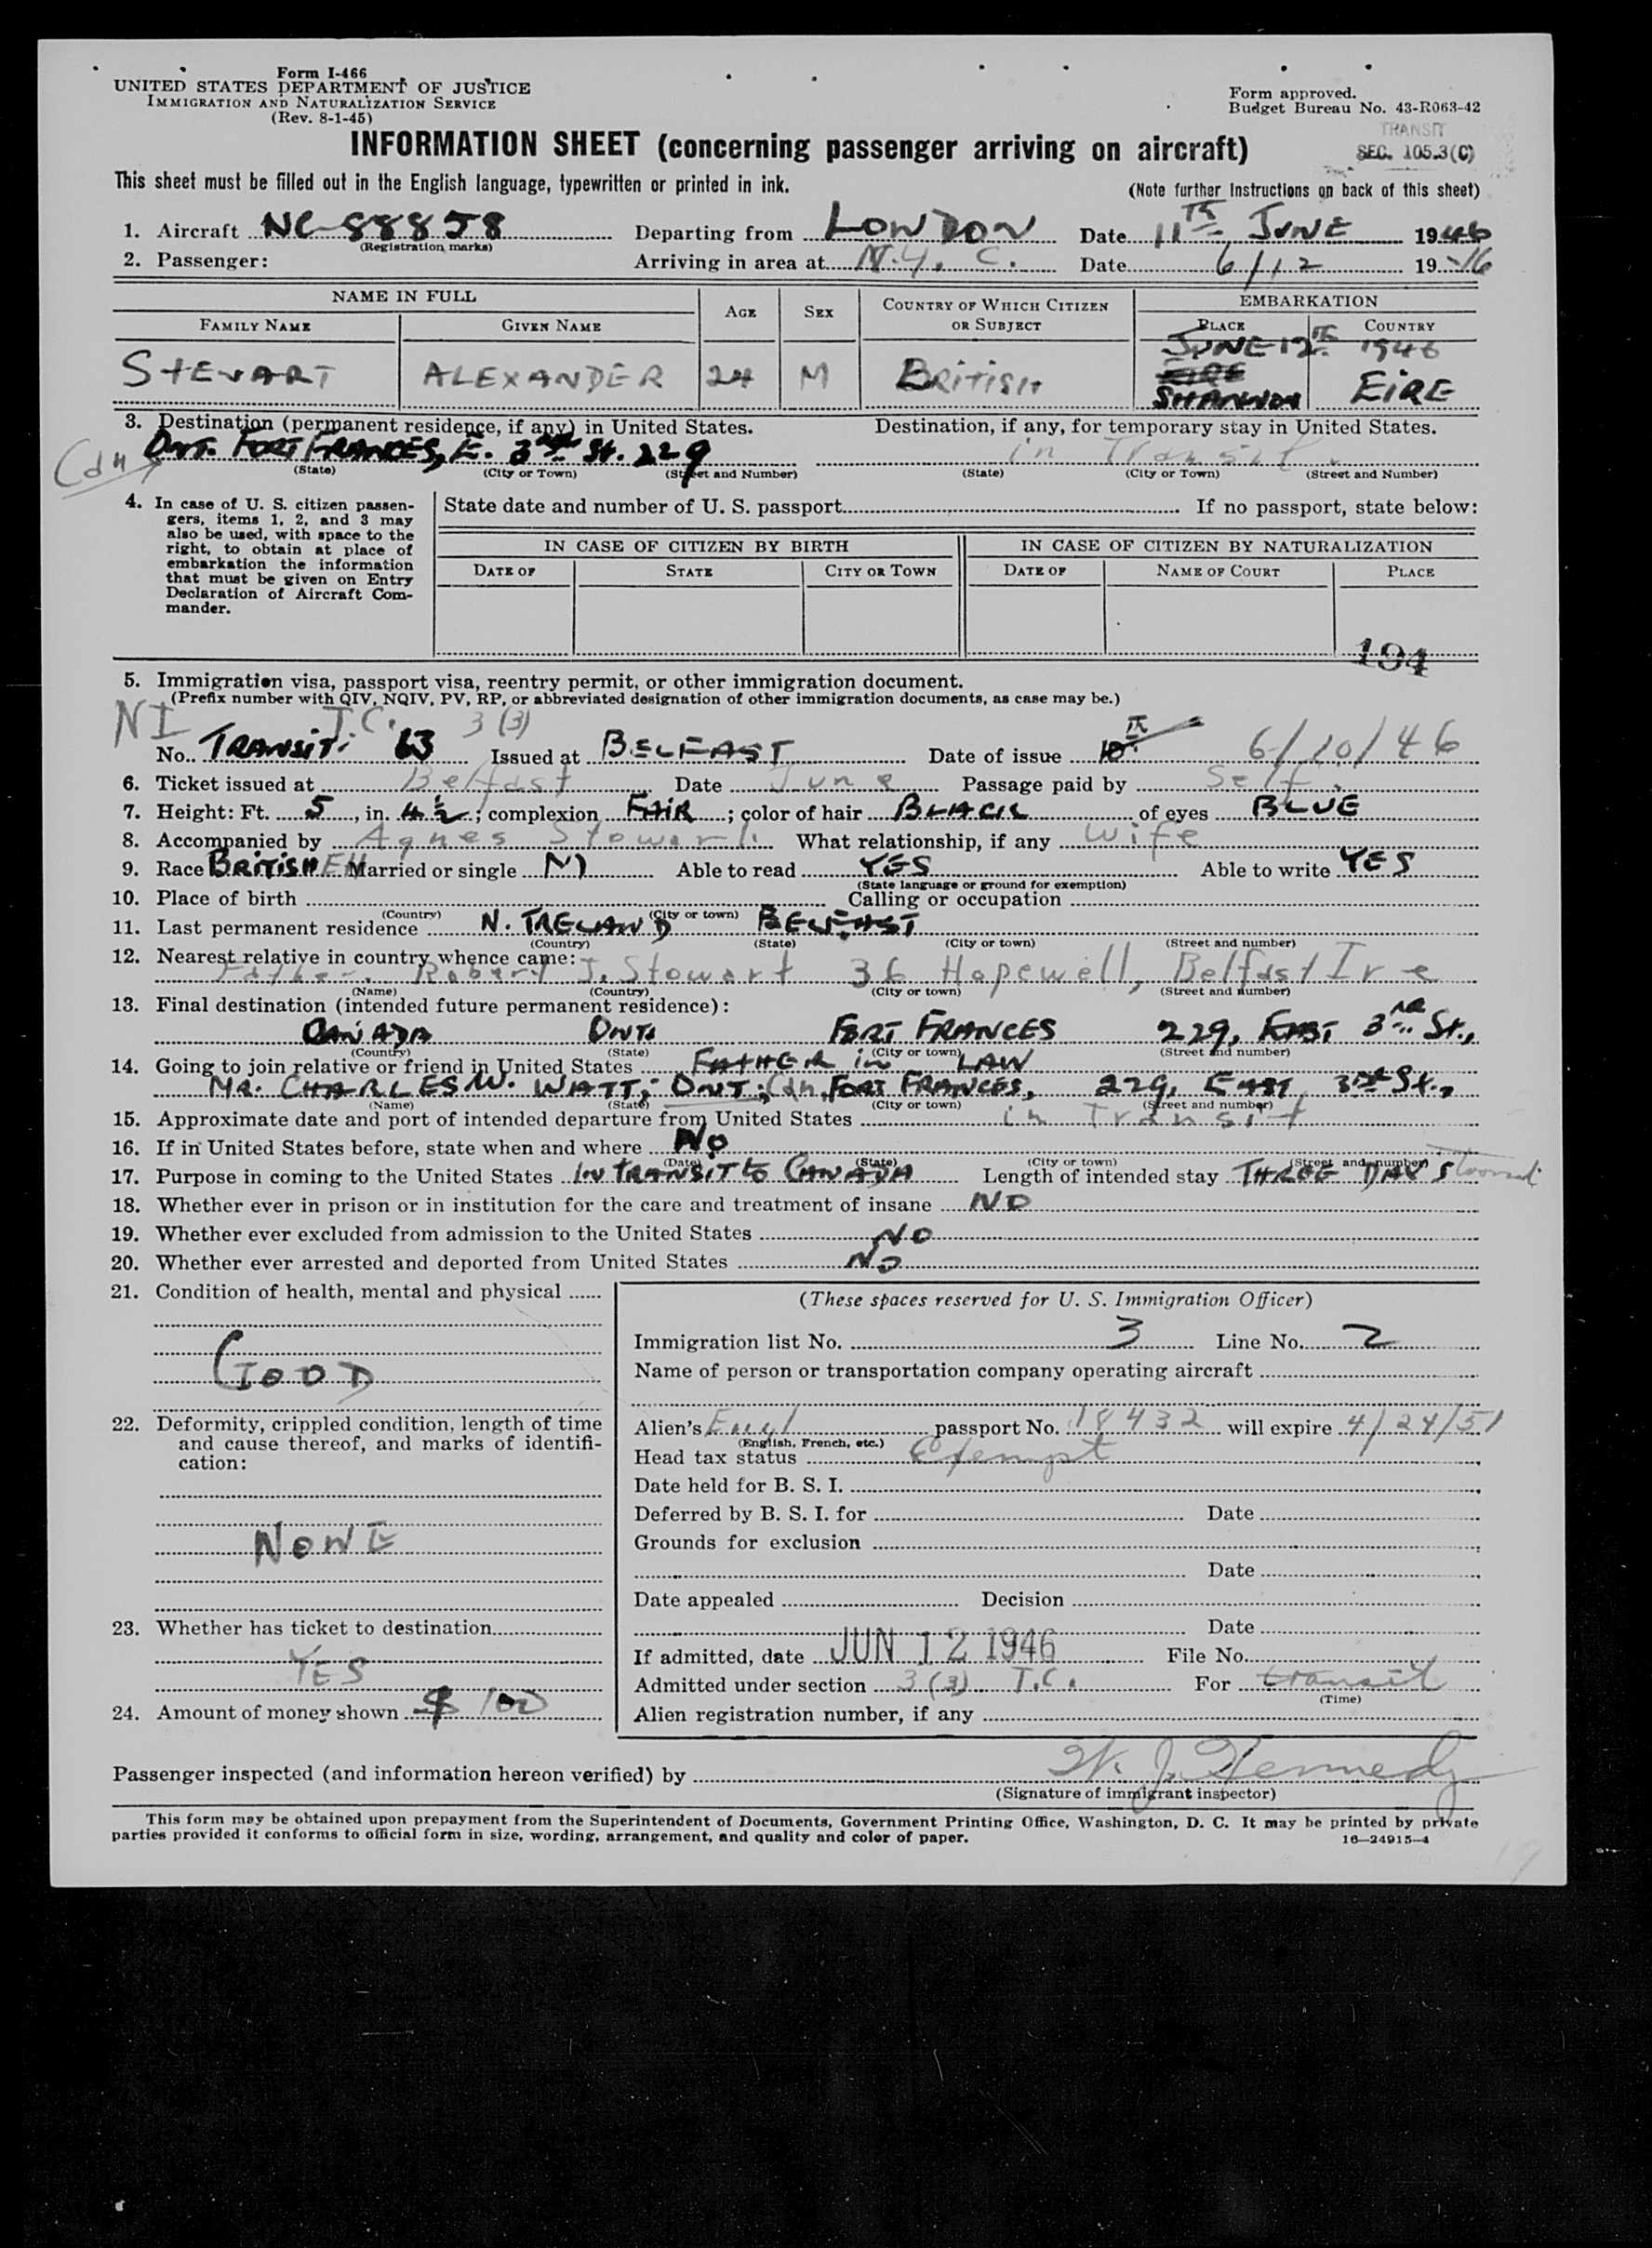 Form I-466
UNITED STATES DEPARTMENT OF JUSTICE
IMMIGRATION AND NATURALIZATION SERVICE
(Rev. 8-1-45)
Form approved.
Budget Bureau No. 43-R063-42
TRANSIT
SEC. 105.3(C)
INFORMATION SHEET (concerning passenger arriving on aircraft)
This sheet must be filled out in the English language, typewritten or printed in ink.
(Note further Instructions on back of this sheet)
1. Aircraft NC-88858 Departing from LONDON Date 11TH JUNE 1946
(Registration marks)
2. Passenger: Arriving in area at N.Y. C. Date 6/12 1946
NAME IN FULL AGE SEX COUNTRY OF WHICH CITIZEN OR SUBJECT EMBARKATION
FAMILY NAME GIVEN NAME PLACE COUNTRY
JUNE 12TH 1946
STEWART ALEXANDER 24 M BRITISH EIRE SHANNON EIRE
3. Destination (permanent residence, if any) in United States. Destination, if any, for temporary stay in United States.
Cdn ONT. FORT FRANCES, E. 3RD St. 229 in Transit.
(State) (City or Town) (Street and Number) (State) (City or Town) (Street and Number)
4. In case of U. S. citizen passengers, items 1, 2, and 3 may also be used, with space to the right, to obtain at place of embarkation the information that must be given on Entry Declaration of Aircraft Commander.
State date and number of U. S. passport If no passport, state below:
IN CASE OF CITIZEN BY BIRTH IN CASE OF CITIZEN BY NATURALIZATION
DATE OF STATE CITY OR TOWN DATE OF NAME OF COURT PLACE
194
5. Immigration visa, passport visa, reentry permit, or other immigration document.
(Prefix number with QIV, NQIV, PV, RP, or abbreviated designation of other immigration documents, as case may be.)
NI T.C. 3(3)
No. TRANSIT: 63 Issued at BELFAST Date of issue 10TH 6/10/46
6. Ticket issued at Belfast Date June Passage paid by Self.
7. Height: Ft. 5, in. 4½; complexion FAIR; color of hair BLACK of eyes BLUE
8. Accompanied by Agnes Stewart. What relationship, if any wife
9. Race BRITISH EN Married or single M Able to read YES Able to write YES
(State language or ground for exemption)
10. Place of birth Calling or occupation
(Country) (City or town)
11. Last permanent residence N. IRELAND BELFAST
(Country) (State) (City or town) (Street and number)
12. Nearest relative in country whence came:
Father. Robert J. Stewart 36 Hopewell, Belfast Ire
(Name) (Country) (City or town) (Street and number)
13. Final destination (intended future permanent residence):
CANADA ONT. FORT FRANCES 229, EAST 3RD St.,
(Country) (State) (City or town) (Street and number)
14. Going to join relative or friend in United States FATHER in LAW
MR. CHARLES W. WATT; ONT; Cdn, FORT FRANCES, 229, EAST 3RD St.,
(Name) (State) (City or town) (Street and number)
15. Approximate date and port of intended departure from United States in Transit
16. If in United States before, state when and where No
(Date) (State) (City or town) (Street and number)
17. Purpose in coming to the United States IN TRANSIT to CANADA Length of intended stay THREE DAYS
18. Whether ever in prison or in institution for the care and treatment of insane NO
19. Whether ever excluded from admission to the United States NO
20. Whether ever arrested and deported from United States NO
21. Condition of health, mental and physical
GOOD
22. Deformity, crippled condition, length of time and cause thereof, and marks of identification:
NONE
23. Whether has ticket to destination
YES
24. Amount of money shown $ 100
(These spaces reserved for U. S. Immigration Officer)
Immigration list No. 3 Line No. 2
Name of person or transportation company operating aircraft
Alien's Engl passport No. 18432 will expire 4/24/51
(English, French, etc.)
Head tax status Exempt
Date held for B. S. I.
Deferred by B. S. I. for Date
Grounds for exclusion
Date
Date appealed Decision
Date
If admitted, date JUN 12 1946 File No.
Admitted under section 3(3) T.C. For transit
(Time)
Alien registration number, if any
Passenger inspected (and information hereon verified) by W. J. Kennedy
(Signature of immigrant inspector)
This form may be obtained upon prepayment from the Superintendent of Documents, Government Printing Office, Washington, D. C. It may be printed by private
parties provided it conforms to official form in size, wording, arrangement, and quality and color of paper.
16—24915-4